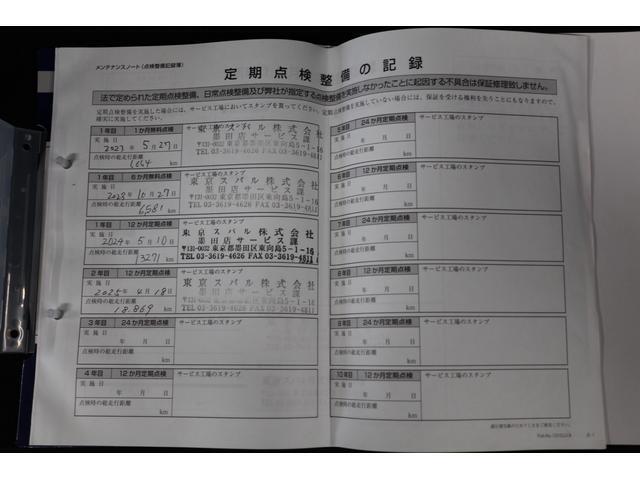 メンテナンスノート(点検整備記録簿)
定期点検整備の記録
法で定められた定期点検整備、日常点検整備及び弊社が指定する点検整備を実施しなかったことに起因する不具合は保証修理致しません。
定期点検整備を実施した場合には、サービス工場においてスタンプを貰ってください。定期点検整備を実施していない場合には、保証を受ける権利を失うことにもなりますので、
確実に実施してください。
1年目 1か月無料点検 サービス工場のスタンプ
実施日
2023年 5月27日
点検時の総走行距離
1664 km
東京スバル株式会社
墨田店サービス課
〒131-0032 東京都墨田区東向島5-1-16
TEL 03-3619-4626 FAX 03-3619-4811
1年目 6か月無料点検 サービス工場のスタンプ
実施日
2023年 10月27日
点検時の総走行距離
6581 km
東京スバル株式会社
墨田店サービス課
〒131-0032 東京都墨田区東向島5-1-16
TEL 03-3619-4626 FAX 03-3619-4811
1年目 12か月定期点検 サービス工場のスタンプ
実施日
2024年 5月10日
点検時の総走行距離
13271 km
東京スバル株式会社
墨田店サービス課
〒131-0032 東京都墨田区東向島5-1-16
TEL 03-3619-4626 FAX 03-3619-4811
2年目 12か月定期点検 サービス工場のスタンプ
実施日
2025年 4月18日
点検時の総走行距離
18.869 km
東京スバル株式会社
墨田店サービス課
〒131-0032 東京都墨田区東向島5-1-16
TEL 03-3619-4626 FAX 03-3619-4811
3年目 24か月定期点検 サービス工場のスタンプ
実施日
年 月 日
点検時の総走行距離
km
4年目 12か月定期点検 サービス工場のスタンプ
実施日
年 月 日
点検時の総走行距離
km
5年目 24か月定期点検 サービス工場のスタンプ
実施日
年 月 日
点検時の総走行距離
km
6年目 12か月定期点検 サービス工場のスタンプ
実施日
年 月 日
点検時の総走行距離
km
7年目 24か月定期点検 サービス工場のスタンプ
実施日
年 月 日
点検時の総走行距離
km
8年目 12か月定期点検 サービス工場のスタンプ
実施日
年 月 日
点検時の総走行距離
km
9年目 24か月定期点検 サービス工場のスタンプ
実施日
年 月 日
点検時の総走行距離
km
10年目 12か月定期点検 サービス工場のスタンプ
実施日
年 月 日
点検時の総走行距離
km